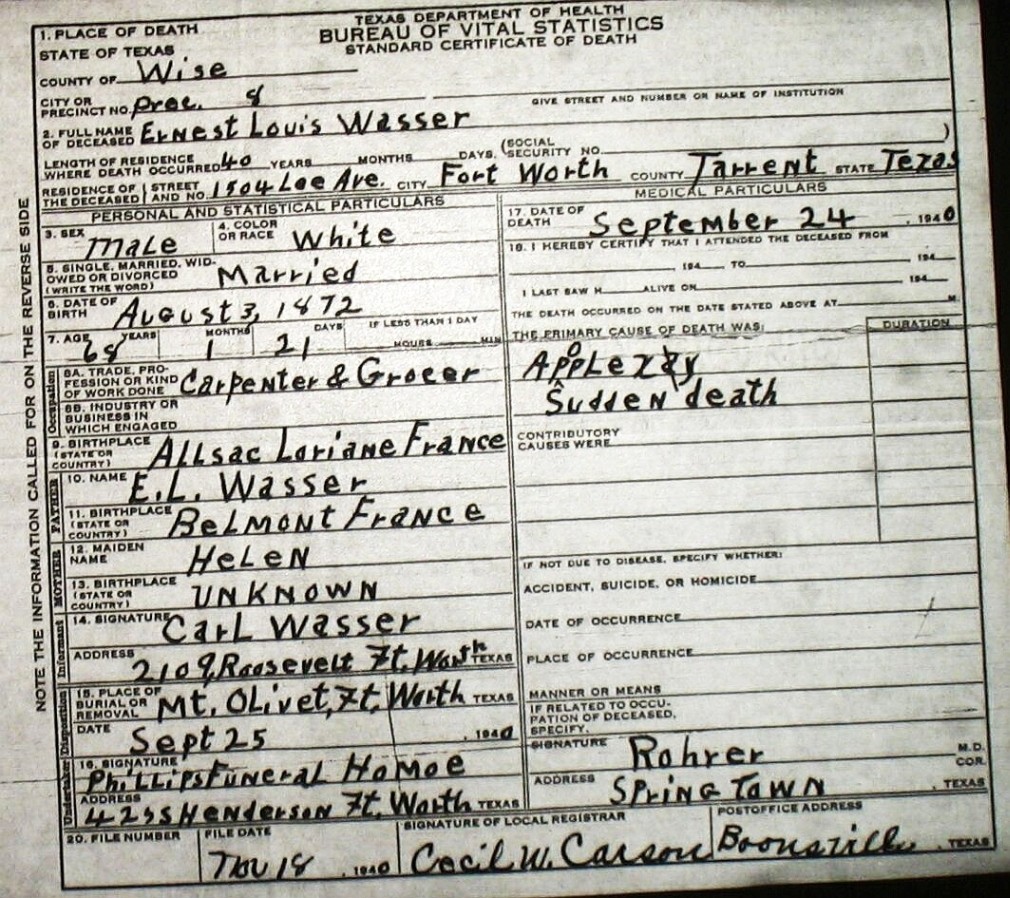 TEXAS DEPARTMENT OF HEALTH
BUREAU OF VITAL STATISTICS
STANDARD CERTIFICATE OF DEATH
NOTE THE INFORMATION CALLED FOR ON THE REVERSE SIDE
1. PLACE OF DEATH
STATE OF TEXAS
COUNTY OF Wise
CITY OR PRECINCT NO. prec. 8
GIVE STREET AND NUMBER OR NAME OF INSTITUTION
2. FULL NAME OF DECEASED Ernest Louis Wasser
LENGTH OF RESIDENCE WHERE DEATH OCCURRED 40 YEARS MONTHS DAYS. (SOCIAL SECURITY NO. )
RESIDENCE OF THE DECEASED STREET AND NO. 1504 Lee Ave. CITY Fort Worth COUNTY Tarrent STATE Texas
PERSONAL AND STATISTICAL PARTICULARS
3. SEX Male 4. COLOR OR RACE White
5. SINGLE, MARRIED, WIDOWED OR DIVORCED (WRITE THE WORD) Married
6. DATE OF BIRTH August 3, 1872
7. AGE YEARS MONTHS DAYS IF LESS THAN 1 DAY
68 1 21 HOURS MIN.
Occupation
8A. TRADE, PROFESSION OR KIND OF WORK DONE Carpenter & Grocer
8B. INDUSTRY OR BUSINESS IN WHICH ENGAGED
9. BIRTHPLACE (STATE OR COUNTRY) Allsac Loriane France
FATHER
10. NAME E.L. Wasser
11. BIRTHPLACE (STATE OR COUNTRY) Belmont France
MOTHER
12. MAIDEN NAME Helen
13. BIRTHPLACE (STATE OR COUNTRY) UNKNOWN
Informant
14. SIGNATURE Carl Wasser
ADDRESS 2109, Roosevelt Ft. Worth TEXAS
Disposition
15. PLACE OF BURIAL OR REMOVAL Mt. Olivet, Ft. Worth TEXAS
DATE Sept 25, 1940
Undertaker
16. SIGNATURE Phillips Funeral Homoe
ADDRESS Henderson Ft. Worth TEXAS
MEDICAL PARTICULARS
17. DATE OF DEATH September 24, 1940
18. I HEREBY CERTIFY THAT I ATTENDED THE DECEASED FROM
194 TO 194
I LAST SAW H ALIVE ON 194
THE DEATH OCCURRED ON THE DATE STATED ABOVE AT M.
THE PRIMARY CAUSE OF DEATH WAS: DURATION
Sudden death
CONTRIBUTORY CAUSES WERE
IF NOT DUE TO DISEASE, SPECIFY WHETHER:
ACCIDENT, SUICIDE, OR HOMICIDE
DATE OF OCCURRENCE
PLACE OF OCCURRENCE
MANNER OR MEANS
IF RELATED TO OCCUPATION OF DECEASED, SPECIFY.
SIGNATURE Rohrer M.D. COR.
ADDRESS Spring Town, TEXAS
20. FILE NUMBER FILE DATE SIGNATURE OF LOCAL REGISTRAR POSTOFFICE ADDRESS
Nov 18, 1940 Cecil W. Carson Boonsville, TEXAS